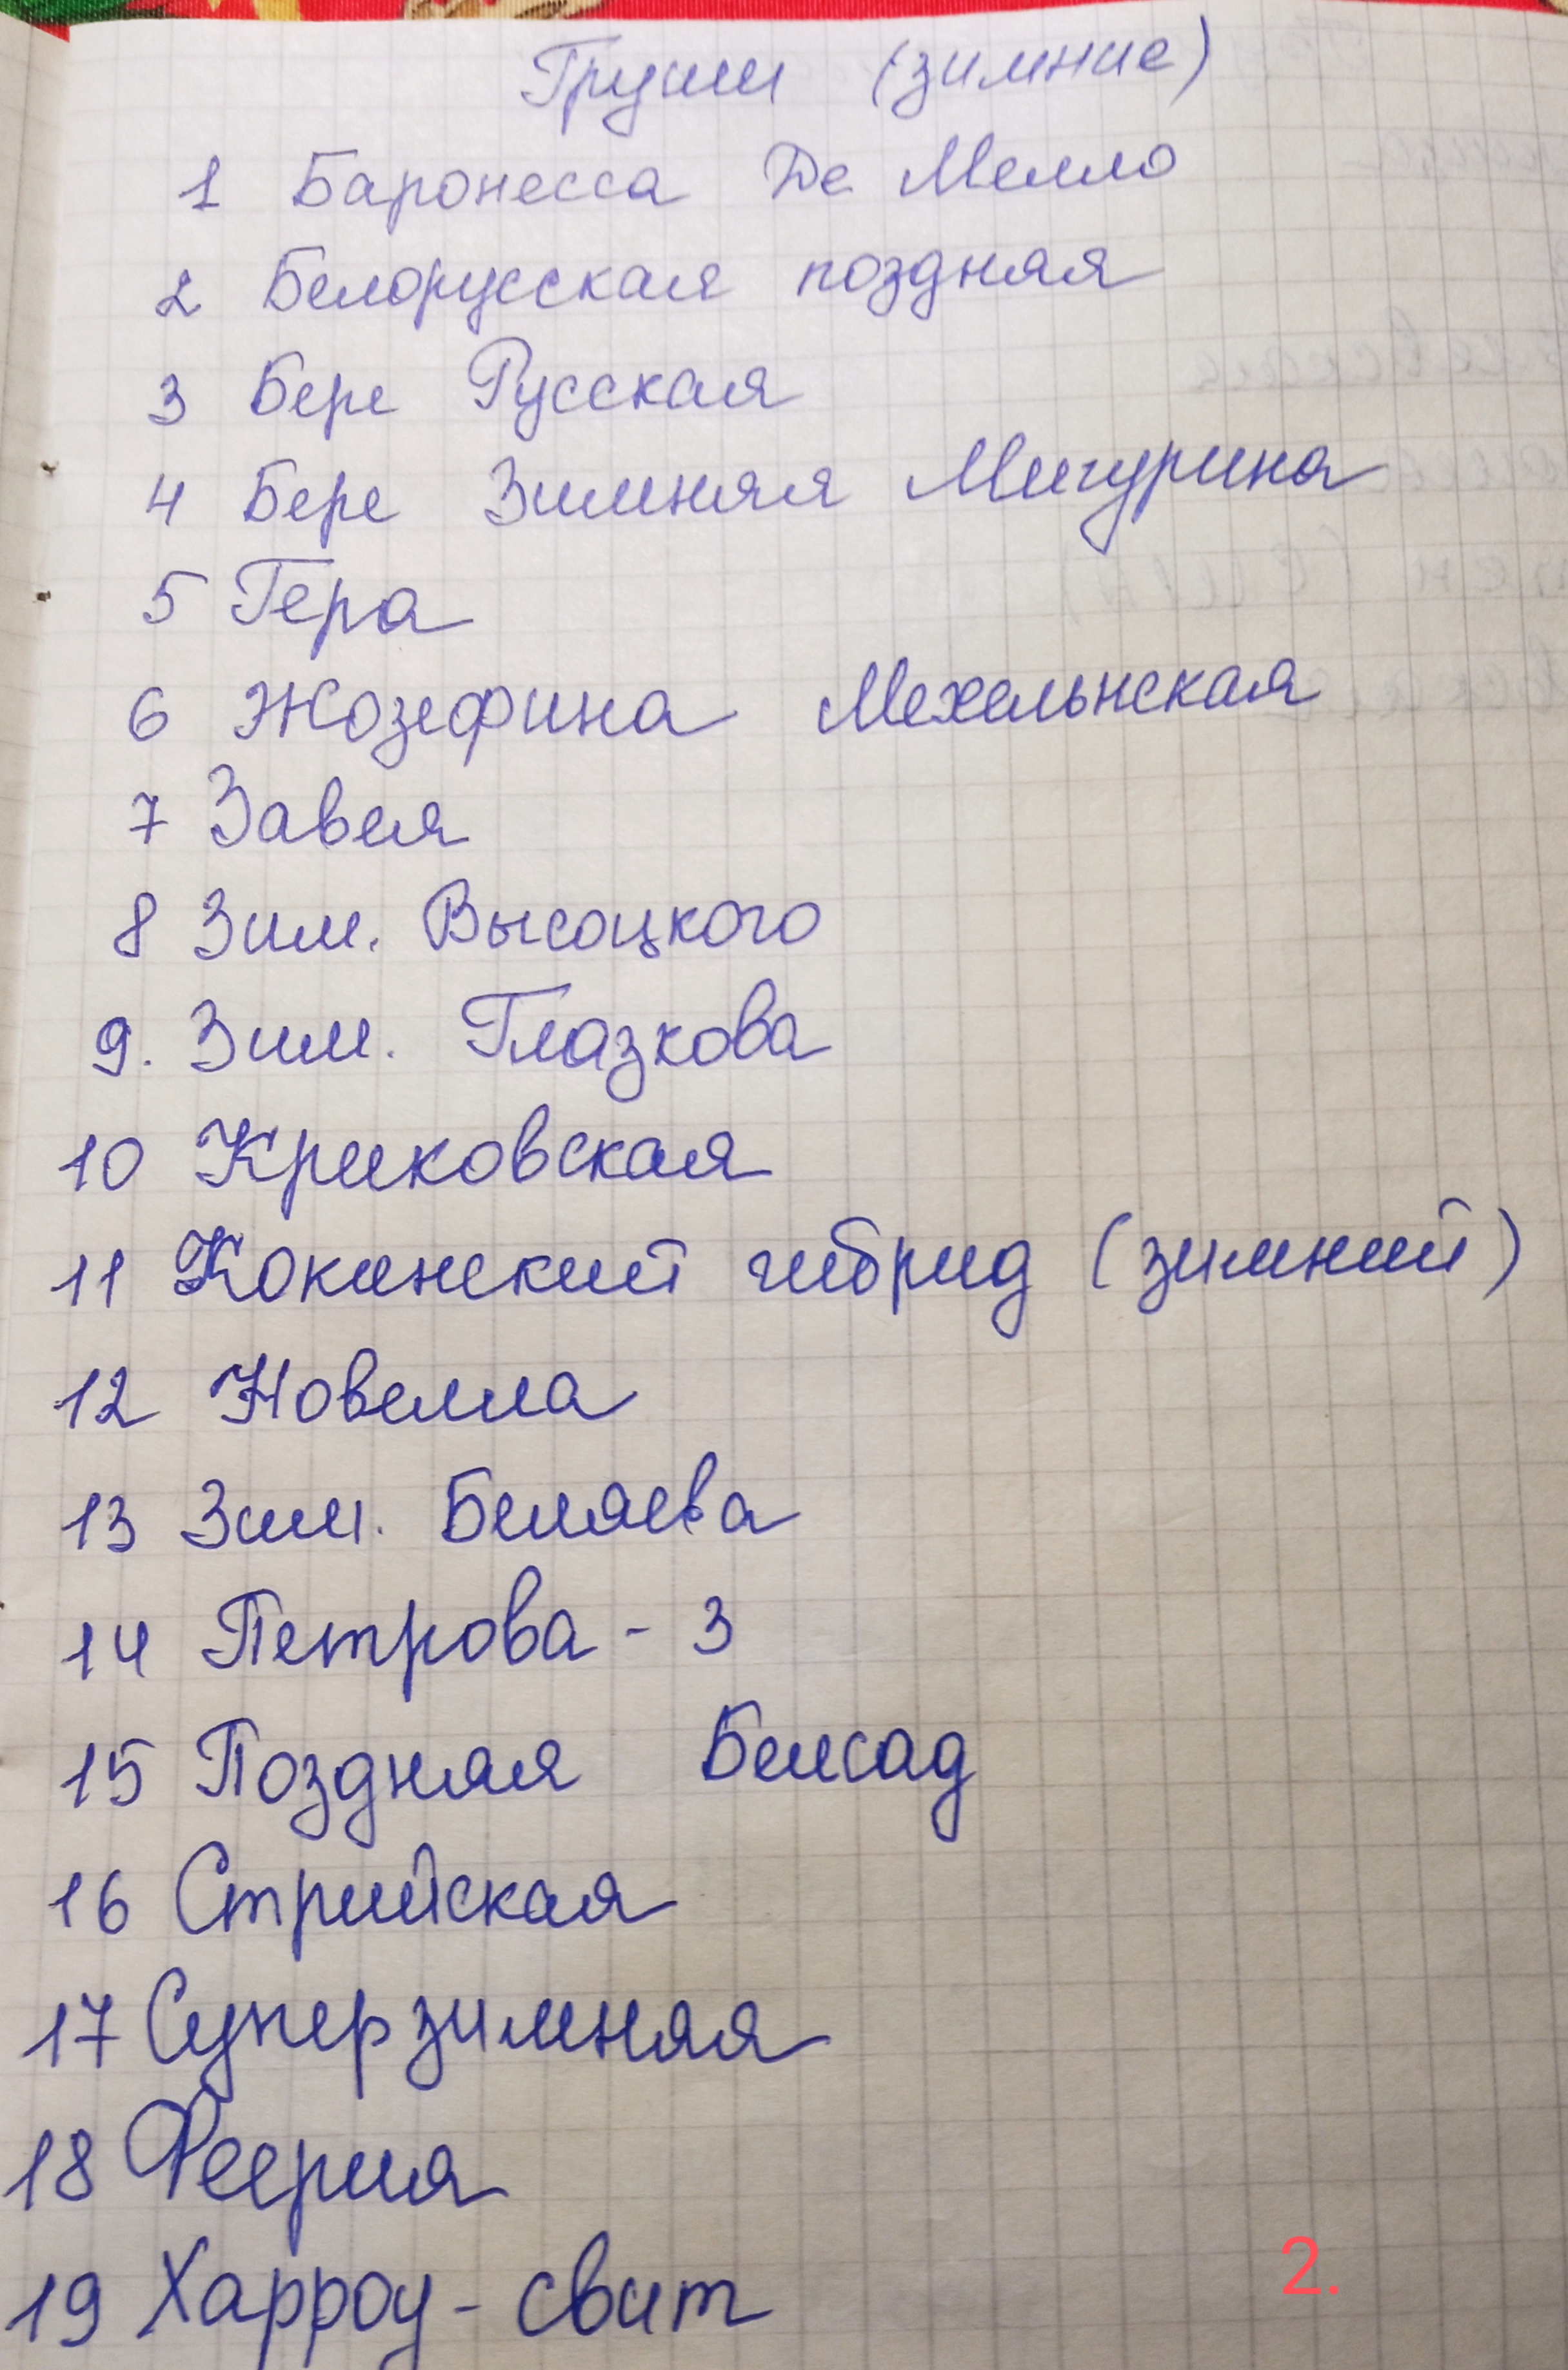 Груши (зимние)
1 Баронесса Де Мелло
2 Белорусская поздняя
3 Бере Русская
4 Бере Зимняя Мичурина
5 Гера
6 Жозефина Мехельнская
7 Завея
8 Зим. Высоцкого
9. Зим. Глазкова
10 Крюковская
11 Кокинский гибрид (зимний)
12 Новелла
13 Зим. Беляева
14 Петрова - 3
15 Поздняя Белсад
16 Стрийская
17 Суперзимняя
18 Феерия
19 Харроу - свит
2.